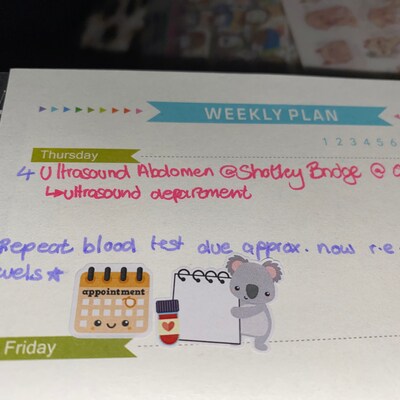 WEEKLY PLAN
1 2 3 4 5 6
Thursday
4 Ultrasound Abdomen @Shotley Bridge @
↳ultrasound department
Repeat blood test due approx. now r.e
appointment
Friday